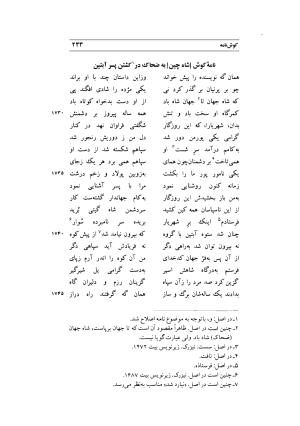 کوش‌نامه
۲۳۳
نامهٔ کوش [شاه چین] به ضحاک؛ در کشتن پسر آبتین
همان گه نویسنده را پیش خواند
وزاین داستان چند با او براند
چو بر پرنیان بر گذر کرد نی
یکی مژده را شادی افگند پی
که شاه جهان تا جهان شاه باد
از او دست بدخواه کوتاه باد
کمرگاه او سخت باد و تنش
همه ساله پیروز بر دشمنش
۱۷۳۰
بدان، شهریارا، که این روزگار
شگفتی فراوان نهد در کنار
گرامی یکی پورمن دور شد
دل من ز دوریش رنجور شد
به‌کام‌م درآمد سر شست او
سپاهم شکسته شد از دست او
همی‌تاخت بر دشمنان‌چون همای
سپاهم همی برد هر یک زجای
یکی نامور پور ما را بکشت
به‌زوبین پولاد و زخم درشت
۱۷۳۵
زمانه کنون روشنایی نمود
مرا با پسر آشنایی نمود
به‌من باز بخشیدش این روزگار
به‌کام جهاندار گشته‌ست کار
از این ناسپاسان همه کین کشید
سردشمن شاه گیتی بُرید
فرستادم اینک بر شهریار
بریده سر نامبرده سُوار
چنان شد ستوه آبتین با گروه
که بیرون نیامد شد از پیش کوه
۱۷۴۰
نه بیرون توان شد به‌راهی دگر
نه فریادش آید سپاهی دگر
از آن پس به‌فرّ جهان کدخدای
من آن کوه را اندر آرم زپای
فرستم به‌درگاه شاهش اسیر
به‌دست گرامی یل شیرگیر
گزین کرد صد مرد را زآن سپاه
گزینان رزم و دلیران گاه
بدادند یک ساله‌شان برگ و ساز
همان گه گرفتند راه دراز
۱۷۴۵
۱ـ در اصل: و، باتوجه به موضوع نامه اصلاح شد.
۲ـ چنین است در اصل. ظاهراً مقصود آن است که تا جهان برپاست، شاه جهان (ضحاک) شاد باد. ولی عبارت گویا نیست.
۳ـ در اصل: سست. نیزرک. زیرنویس بیت ۱۴۷۲.
۴ـ در اصل: تافت.
۵ـ در اصل: فرستاده.
۶ـ چنین است در اصل. نیزرک. زیرنویس بیت ۱۴۸۷.
۷ـ چنین است در اصل، «نیارد شد» مناسب به‌نظر می‌رسد.